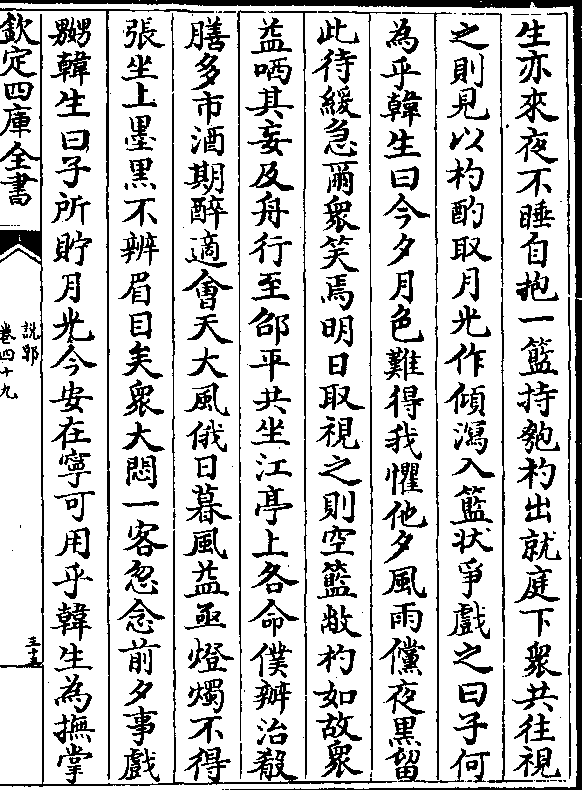 生亦來夜不睡自抱一籃持匏杓出就庭下衆共往視
之則見以杓酌取月光作傾瀉入籃狀爭戲之曰子何
為乎韓生曰今夕月色難得我懼他夕風雨儻夜黑留
此待緩急爾衆笑焉明日取視之則空籃敝杓如故衆
益哂其妄及舟行至邵平共坐江亭上各命僕辦治殽
膳多市酒期醉適會天大風俄日暮風益亟燈燭不得
張坐上墨黑不辨眉目矣衆大悶一客忽念前夕事戲
嬲韓生曰子所貯月光今安在寧可用乎韓生為撫掌
欽定四庫全書
説郛
卷四十九
三十五